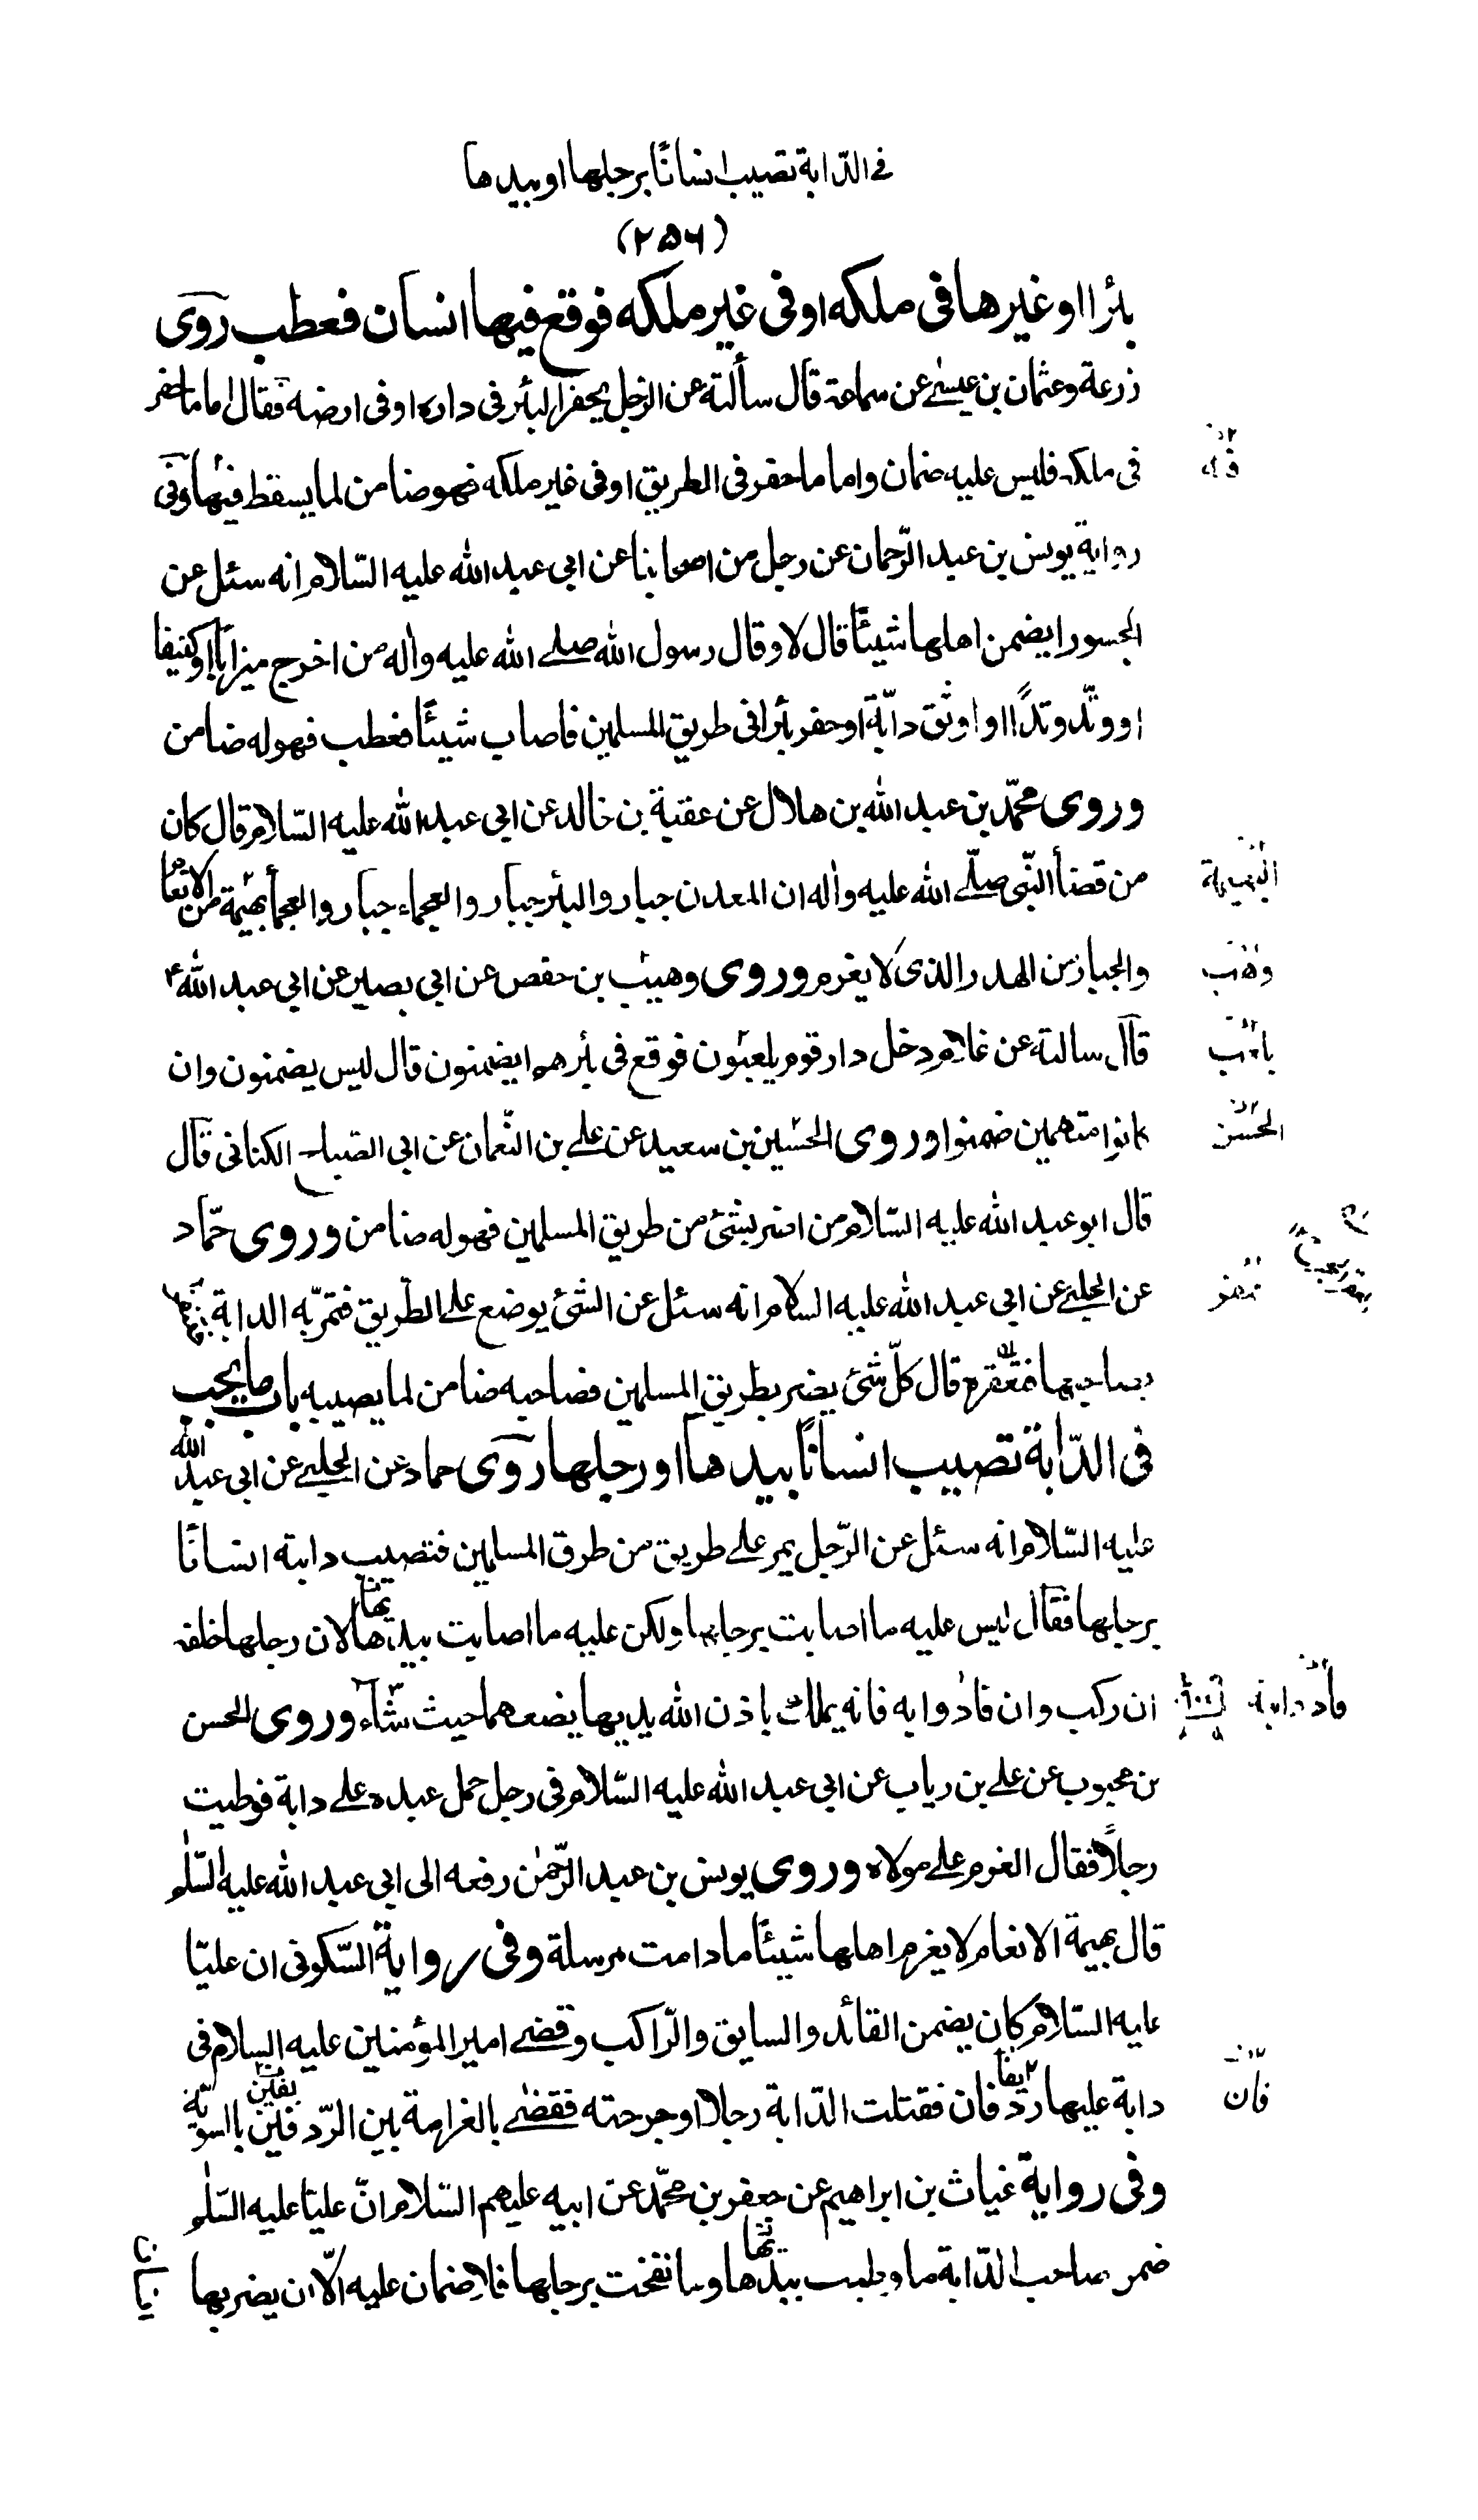 في الدّابة تصيب انسانًا برجلها او بيدها
(۲۵۶)
بئرا او غيرها فى ملكه او فى غير ملكه فوقع فيها انسان فعطب روى
زرعة وعثمان بن عيسى عن سماعة قال سألته عن الرّجل يحفر البئر فى داره او فى ارضه فقال اما ما حفر
فى ملكه فليس عليه ضمان واما ما حفر فى الطريق او فى غير ملكه فهو ضامن لما يسقط فيها وفى
رواية يونس بن عبد الرّحمان عن رجل من اصحابنا عن ابى عبد الله عليه السّلام انه سئل عن
الجسور ايضمن اهلها شيئًا قال لا وقال رسول الله صلى الله عليه وآله من اخرج ميزابًا او كنيفا
او وتّد وتدًا او اوثق دابّة او حفر بئرا فى طريق المسلمين فاصاب شيئًا فعطب فهو له ضامن
وروى محمّد بن عبد الله بن هلال عن عقبة بن خالد عن ابى عبد الله عليه السّلام قال كان
من قضاء النّبى صلّى الله عليه وآله ان المعدن جبار والبئر جبار والعجماء جبار والعجماء بهيمة من الانعام
البهيمة
والجبار من الهدر الذى لا يغرم وروى وهيب بن حفص عن ابى بصير عن ابى عبد الله ع
وهب
قال سالته عن غلام دخل دار قوم يلعبون فوقع فى بئرهم ايضمنون قال ليس يضمنون وان
يلعب
كانوا متهمين ضمنوا وروى الحسين بن سعيد عن على بن النّعمان عن ابى الصباح الكنانى قال
الحسن
قال ابو عبد الله عليه السّلام من اضر بشئ من طريق المسلمين فهو له ضامن وروى حمّاد
عن الحلبى عن ابى عبد الله عليه السلام انه سئل عن الشئ يوضع على الطّريق فتمرّ به الدابة
بصاحبها فتعقره قال كلّ شئ يضر بطريق المسلمين فصاحبه ضامن لما يصيبه باب ما يجب
فى الدّابة تصيب انسانًا بيدها او رجلها روى حماد عن الحلبى عن ابى عبد الله
عليه السّلام انه سئل عن الرّجل يمر على طريق من طرق المسلمين فتصيب دابته انسانًا
برجلها فقال ليس عليه ما اصابت برجلها ولكن عليه ما اصابت بيدها لان رجلها خلفه
ان ركب وان قاد دابه فانه يملك باذن الله يديها يضعهما حيث شاء وروى الحسن
قاد دابته
بن محبوب عن على بن رياب عن ابى عبد الله عليه السّلام فى رجل حمل عبده على دابة فوطيت
رجلاً فقال الغرم على مولاه وروى يونس بن عبد الرّحمٰن رفعه الى ابى عبد الله عليه السّلٰم
قال بهيمة الانعام لا يغرم اهلها شيئًا ما دامت مرسلة وفى رواية السّكونى ان عليّا
عليه السّلام كان يضمن القائد والسايق والرّاكب وقضى امير المؤمنين عليه السلام فى
دابة عليها ردفان فقتلت الدّابة رجلا او جرحته فقضٰى بالغرامة بين الرّدفين بالسويّة
فان
وفى رواية غياث بن ابراهيم عن جعفر بن محمّد عن ابيه عليهم السّلام انّ عليّا عليه السّلٰم
ضمن صاحب الدّابة ما وطيت بيدها وما نفحت برجلها فلا ضمان عليه الّا ان يضربها